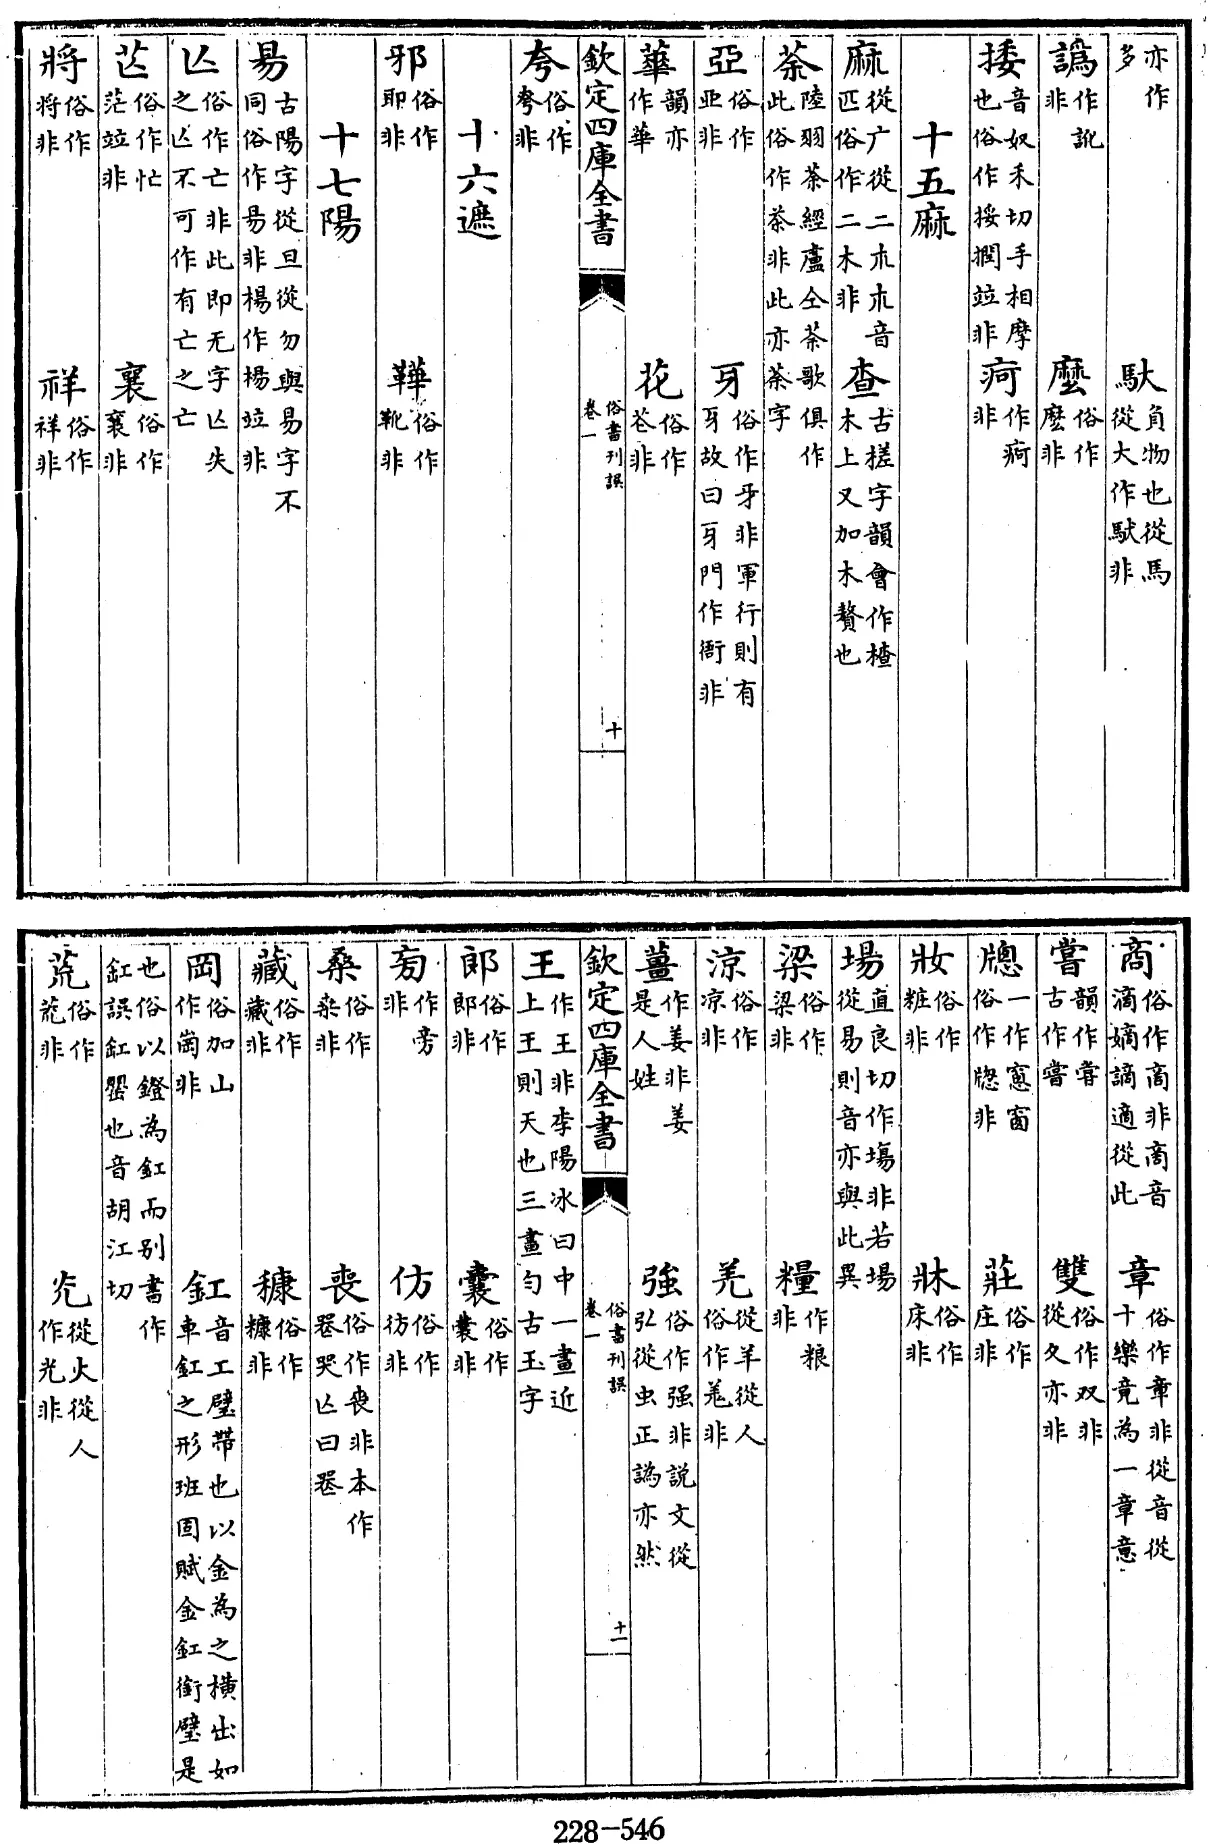 亦作多 馱負物也從馬從大作馱非
譌作訛非 麼俗作麽非
捼音奴禾切手相摩也俗作挼撋竝非 疴作痾非
十五麻
麻從广從二朩朩音匹俗作二木非 查古槎字韻會作楂木上又加木贅也
荼陸羽茶經盧仝茶歌俱作此俗作茶非此亦荼字
亞俗作亜非 牙俗作牙非軍行則有牙故曰牙門作衙非
華韻亦作華 花俗作苍非
欽定四庫全書 俗書刊誤卷一 十
夸俗作夸非
十六遮
邪俗作耶非 鞾俗作靴非
十七陽
昜古陽字從旦從勿與易字不同俗作易非楊作楊竝非
亾俗作亡非此即无字亾失之亾不可作有亡之亡
芒俗作忙茫竝非 襄俗作襄非
將俗作将非 祥俗作祥非
商俗作啇非啇音滴嫡謫適從此 章俗作章非從音從十樂竟為一章意
嘗韻作甞古作嘗 雙俗作双非從文亦非
牕一作窻窗俗作牎非 莊俗作庄非
妝俗作粧非 牀俗作床非
場直良切作塲非若場從易則音亦與此異
梁俗作梁非 糧作粮非
涼俗作凉非 羌從羊從人俗作羗非
薑作姜非姜是人姓 強俗作强非說文從弘從虫正譌亦然
欽定四庫全書 俗書刊誤卷一 十一
王作王非李陽冰曰中一畫近上王則天也三畫勻古玉字
郎俗作郎非 囊俗作囊非
㫄作旁非 仿俗作彷非
桑俗作桒非 喪俗作丧非本作㗊哭亾曰㗊
藏俗作蔵非 穅俗作糠非
岡俗加山作崗非 釭音工璧帶也以金為之横出如車釭之形班固賦金釭銜璧是
也俗以鐙為釭而别書作缸誤缸罌也音胡江切
荒俗作荒非 灮從火從人作光非
228-546